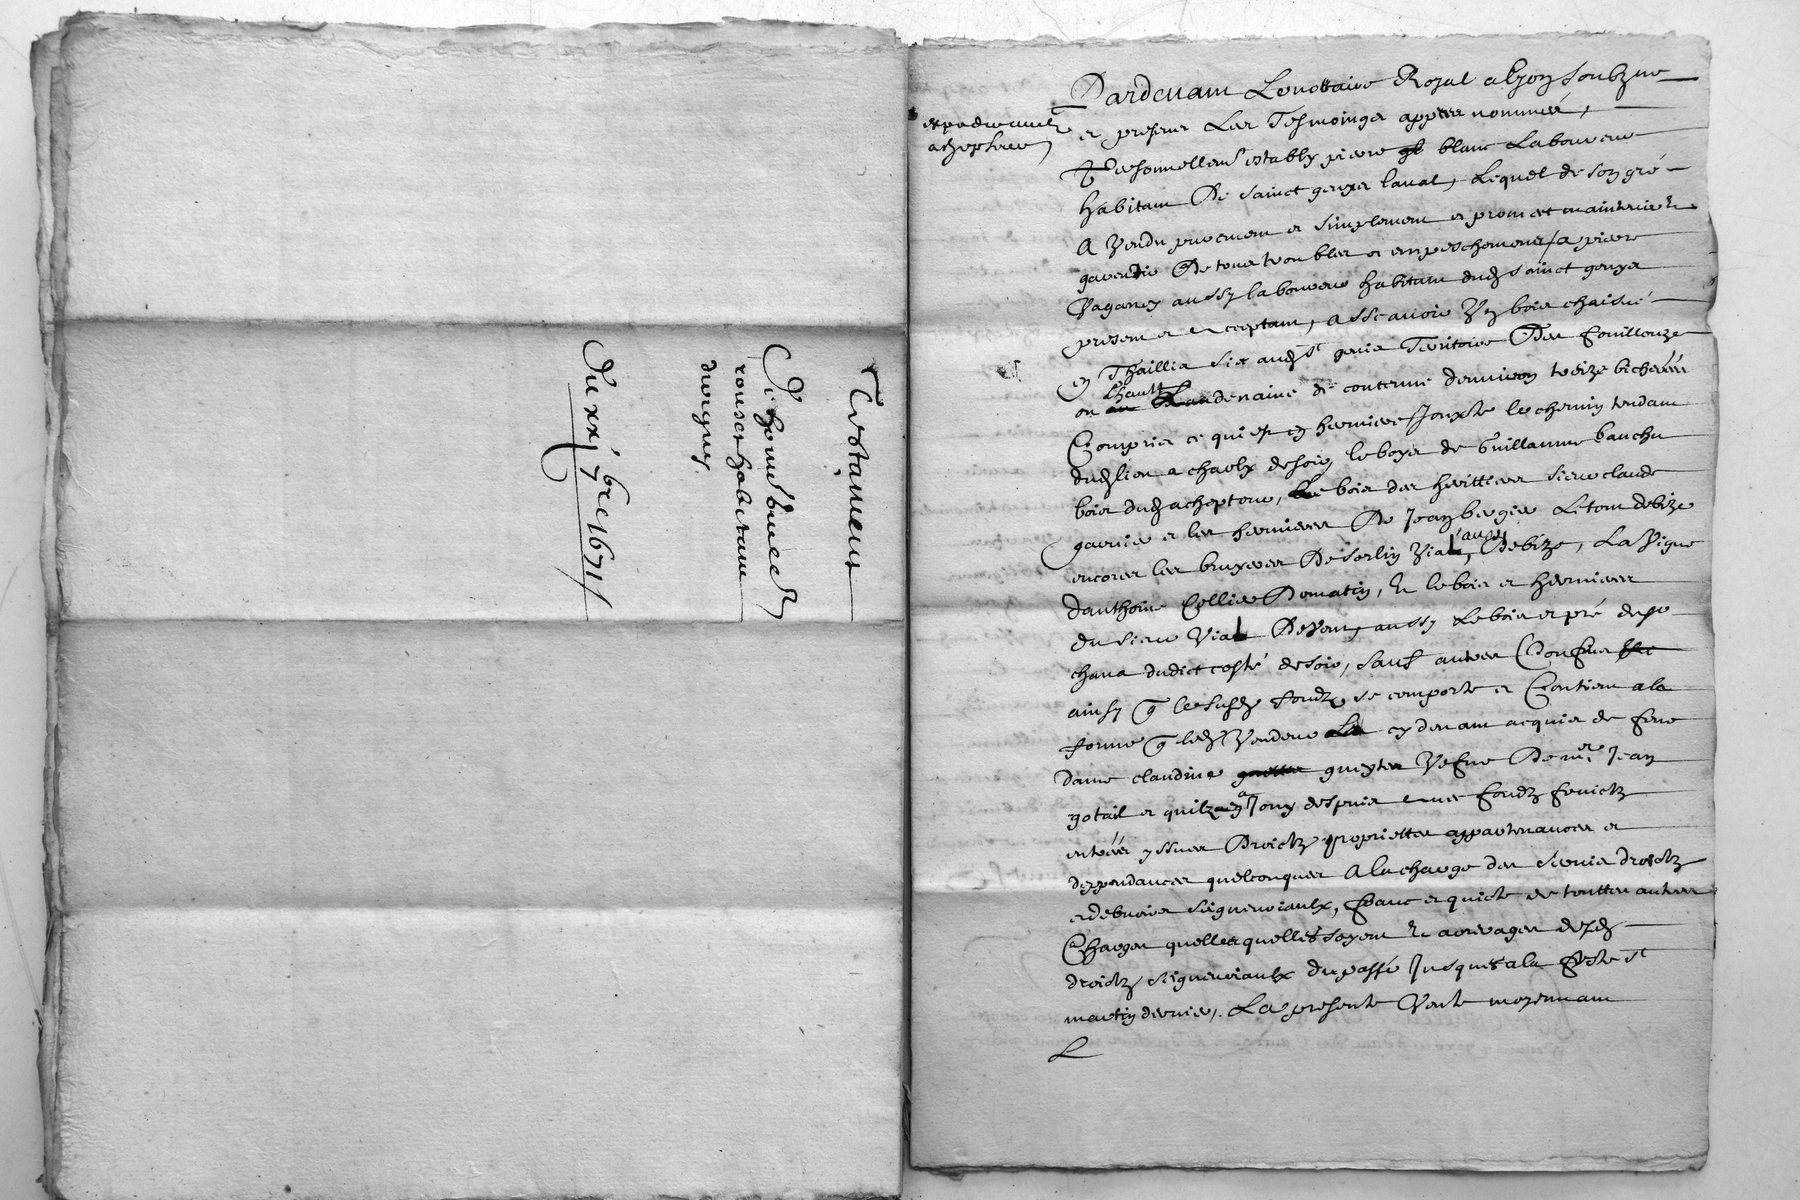 Testament
De honn
rouset habitant
du xxj bre 1671
expedie
Pardevant Le nottaire Royal a Lyon soubzne
et presens Les Tesmoings appres nommés,
Personnellemt estably pierre blanc Laboureur
habitant De sainct genys laval, Lequel de son gré
A vendu purement et simplement et promet maintenir et
garentir De tous troubles et empeschements / a pierre
Paganey aussy laboureur habitant dud sainct genys
present et acceptant, assçavoir Un bois chaisne
en Thaillis sis aud st genis Territoire Des fouillouze
ou Lhault de contenue denviron treize bicherées
Compris ce qui est en hermieres Jouxte le chemin tendant
dud lieu a de soir, le boys de Guillaume bauchu
bois dud achepteur, bois des heritiers sieur claude
garnier et les hermieres De Jean bergier Letour debize
encores les bruyeres De Vial, aussy Debize, La Vigne
danthoine Collier De matin, et le bois et hermieres
du sieur Vial De vent, aussy Le bois et pré de
dudict costé de soir, sauf autres Confins
ainsy q le susd fondz se comporte et Contient a la
forme q led Vendeur cy devant acquis de feue
dame claudine Vefve De mre Jean
gotail et quil en a Jouy despuis avec fondz
entrées yssues Droictz proprietes appartenances et
deppendances quelconques A la charge des servis droictz
et debvoirs seigneuriaulx, franc et quicte de touttes autres
Charges quelles quelles soyent et arrerages desd
droictz seigneuriaulx du passé Jusques a la feste st
martin dernier. La presente Vente moyennant